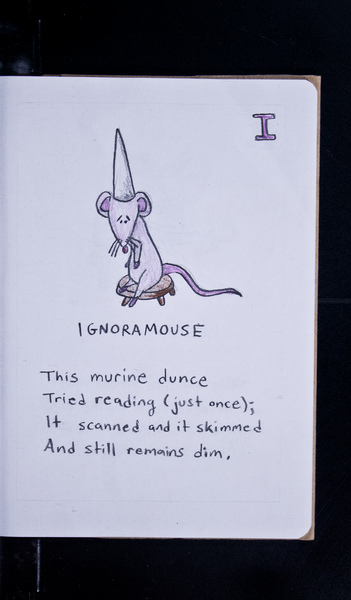 I
IGNORAMOUSE
This murine dunce
Tried reading (just once);
It scanned and it skimmed
And still remains dim.